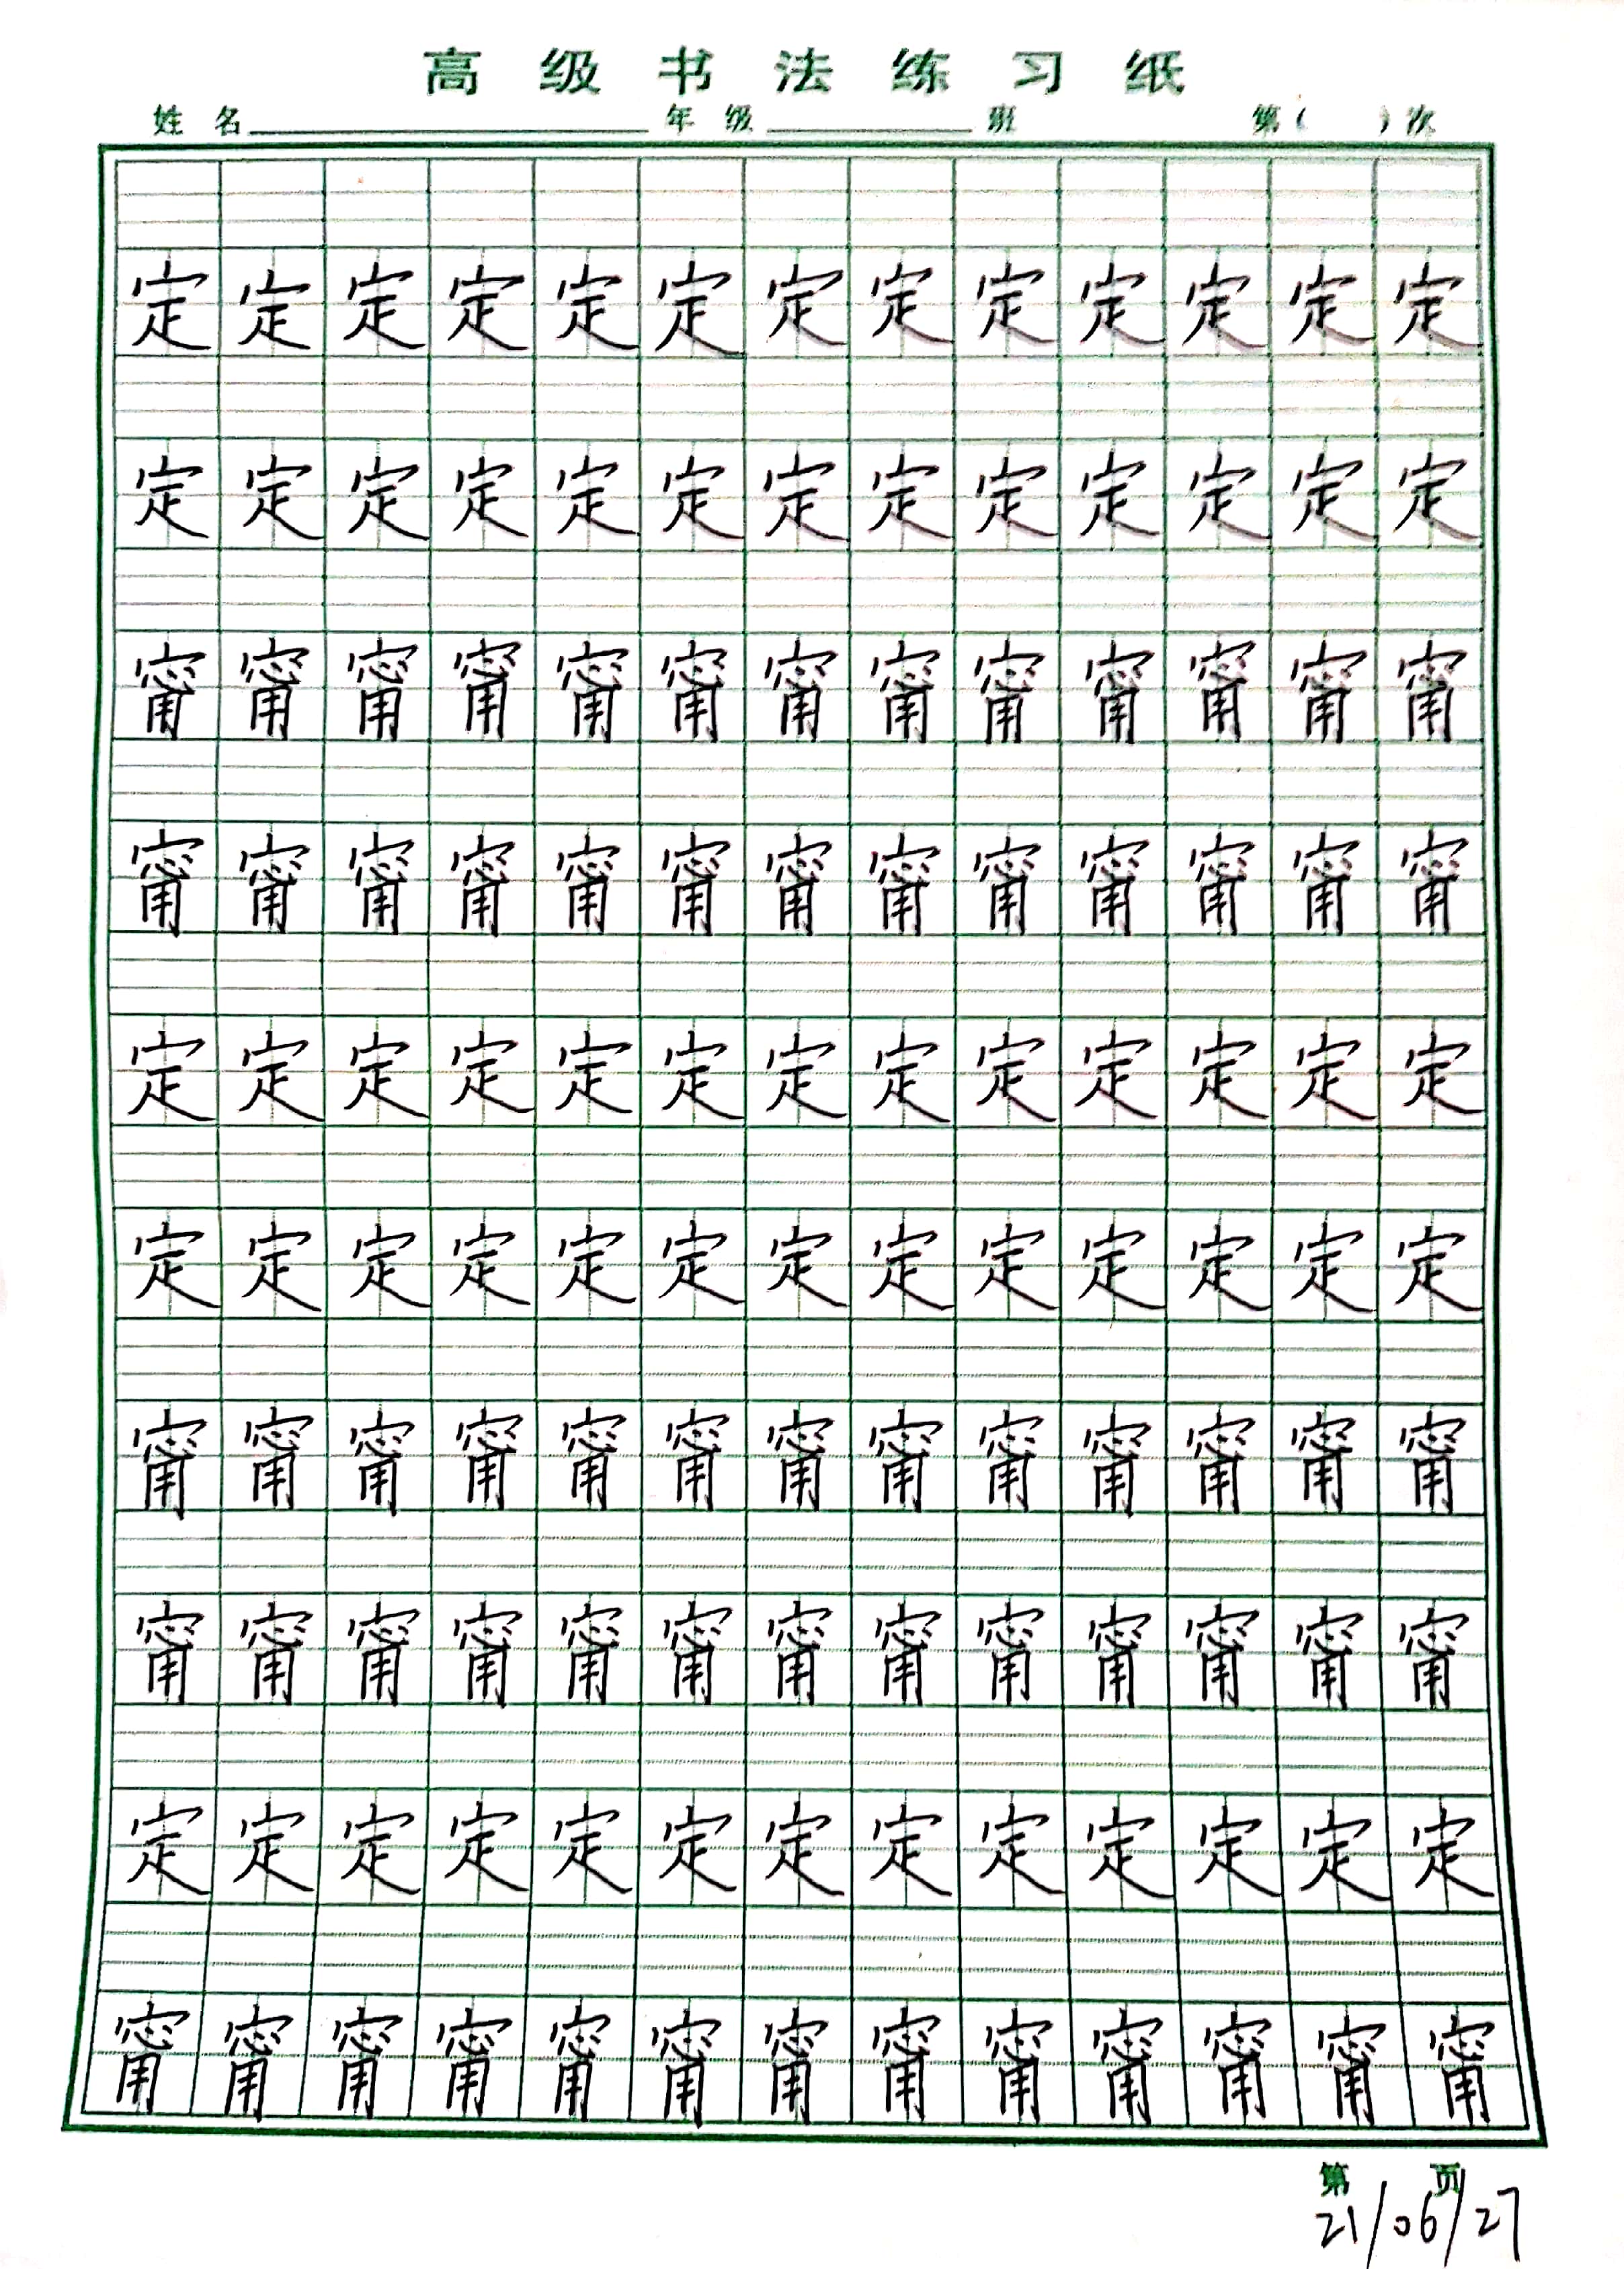 高级书法练习纸
姓名 年级 班 第( )次
定定定定定定定定定定定定定
定定定定定定定定定定定定定
甯甯甯甯甯甯甯甯甯甯甯甯甯
甯甯甯甯甯甯甯甯甯甯甯甯甯
定定定定定定定定定定定定定
定定定定定定定定定定定定定
甯甯甯甯甯甯甯甯甯甯甯甯甯
甯甯甯甯甯甯甯甯甯甯甯甯甯
定定定定定定定定定定定定定
甯甯甯甯甯甯甯甯甯甯甯甯甯
第 页
21/06/27